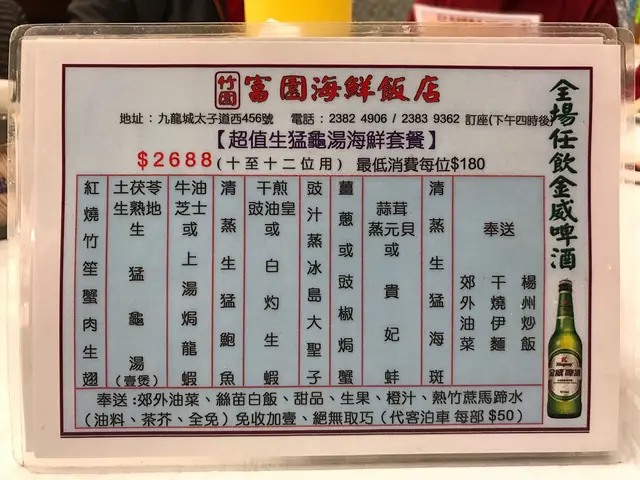 竹園 富園海鮮飯店
地址：九龍城太子道西456號 電話：2382 4906 / 2383 9362 訂座(下午四時後)
【超值生猛龜湯海鮮套餐】
$2688(十至十二位用) 最低消費每位$180
紅燒竹笙蟹肉生翅
土茯苓生熟地生猛龜湯(壹煲)
牛油芝士或上湯焗龍蝦
清蒸生猛鮑魚
干煎豉油皇或白灼生蝦
豉汁蒸冰島大聖子
薑蔥或豉椒焗蟹
蒜茸蒸元貝或貴妃蚌
清蒸生猛海斑
奉送
郊外油菜
干燒伊麵
楊州炒飯
奉送:郊外油菜、絲苗白飯、甜品、生果、橙汁、熟竹蔗馬蹄水
(油料、茶芥、全免)免收加壹、絕無取巧(代客泊車 每部 $50)
全場任飲金威啤酒
金威啤酒